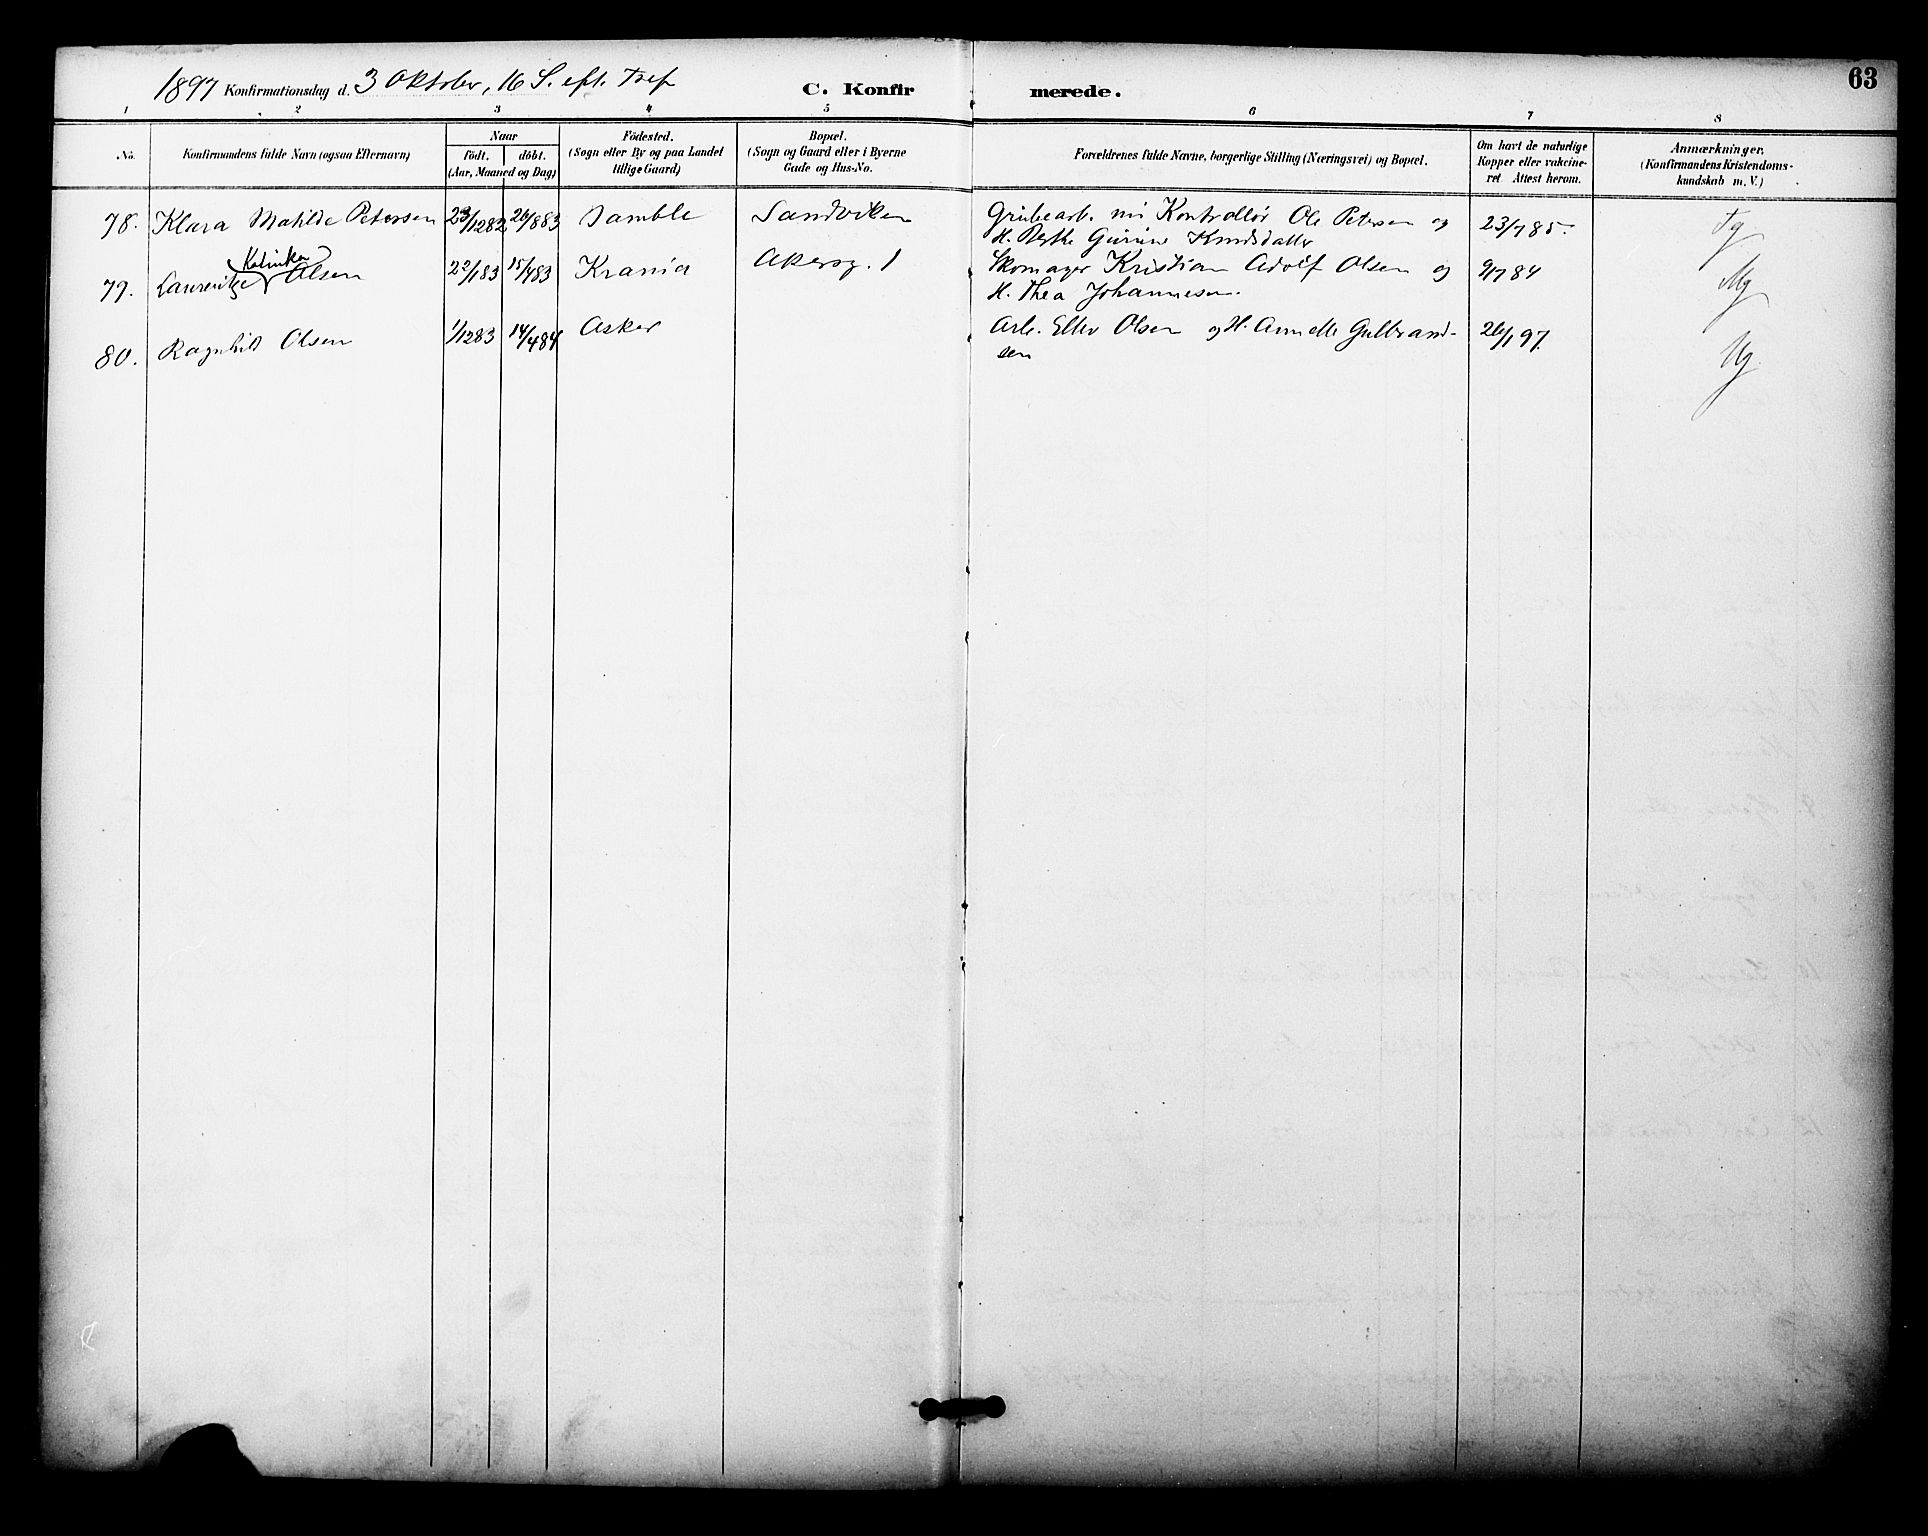 63
1897 Konfirmationsdag d. 3 Oktober, 16 S. eft. Tref
C. Konfirmerede.
1 2 3 4 5 6 7 8
No.
Konfirmandens fulde Navn (ogsaa Efternavn)
Naar
födt. döbt.
(Aar, Maaned og Dag)
Födested.
(Sogn eller By og paa Landet
tillige Gaard)
Bopæl.
(Sogn og Gaard eller i Byerne
Gade og Hus-No.
Forældrenes fulde Navne, borgerlige Stilling (Næringsvei) og Bopæl.
Om havt de naturlige
Kopper eller vakcine-
ret Attest herom.
Anmærkninger,
(Konfirmandens Kristendoms-
kundskab m. V.)
78. Klara Matilde Petersen 23/1282 26/883 Bamble Sandviken Grubearb. nu Kontrollör Ole Petersen og 23/785. Tg
H. Berthe Gurine Knudsdatter
Kalinka
79. Lauentze Olsen 22/183 15/483 Krania Akersg. 1 Skomager Kristian Adolf Olsen og 9/784 Mg
H. Thea Johannesen.
80. Ragnhild Olsen 1/1283 14/484 Asker Arb. Eller Olsen og H. Annette Gulbrand- 26/197. Mg
sen